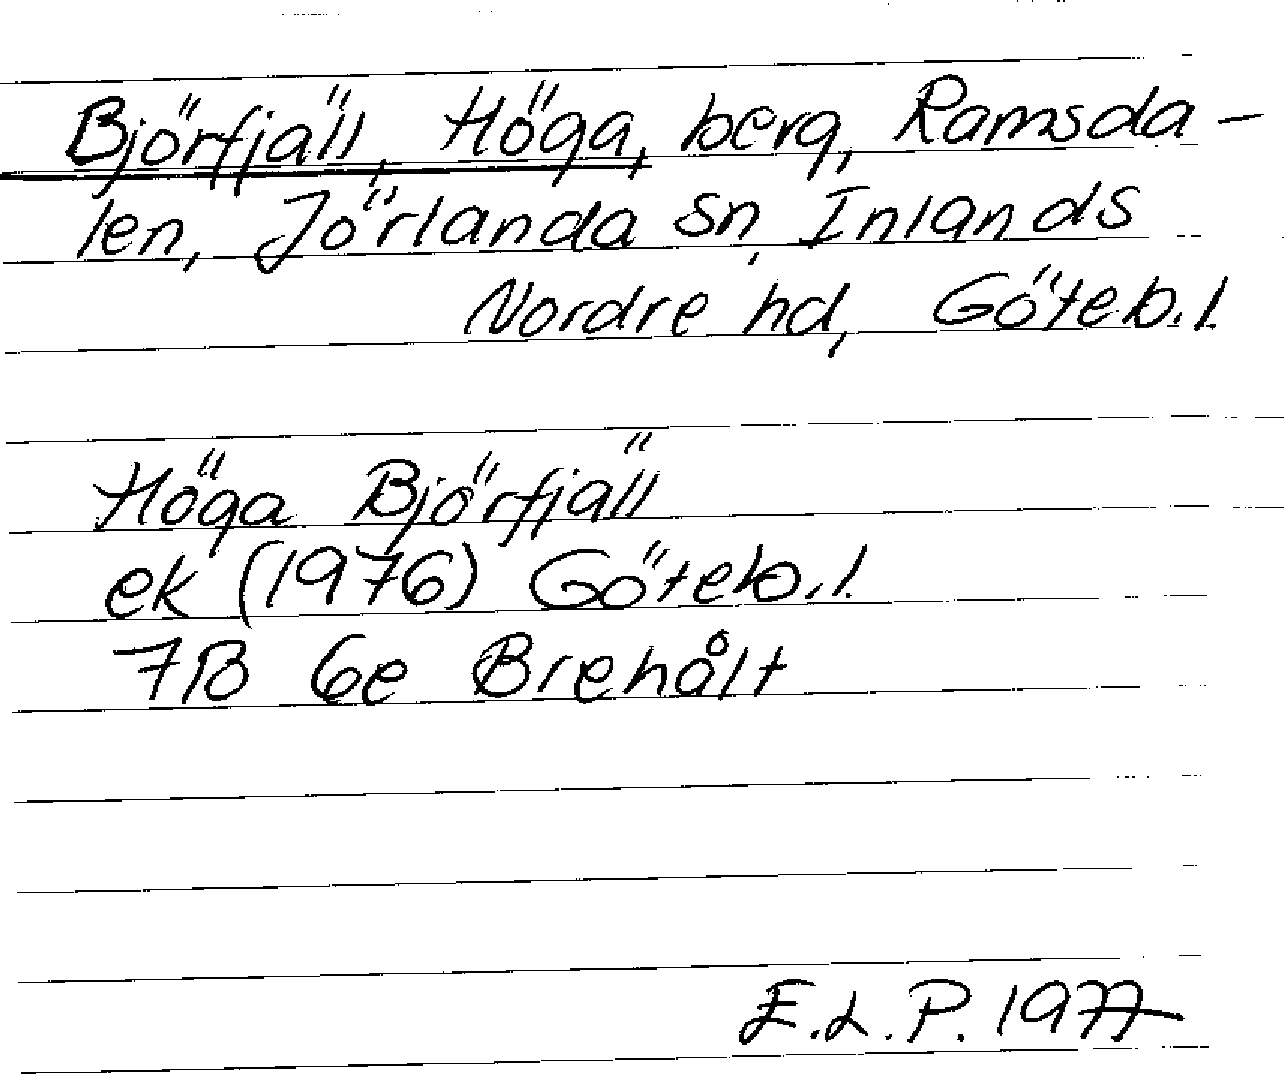 Björfjäll, Höga, berg, Ramsda-
len, Jörlanda sn, Inlands
Nordre hd, Göteb.l.
Höga Björfjäll
ek (1976) Göteb.l.
7B 6e Brehålt
E.L.P. 1977